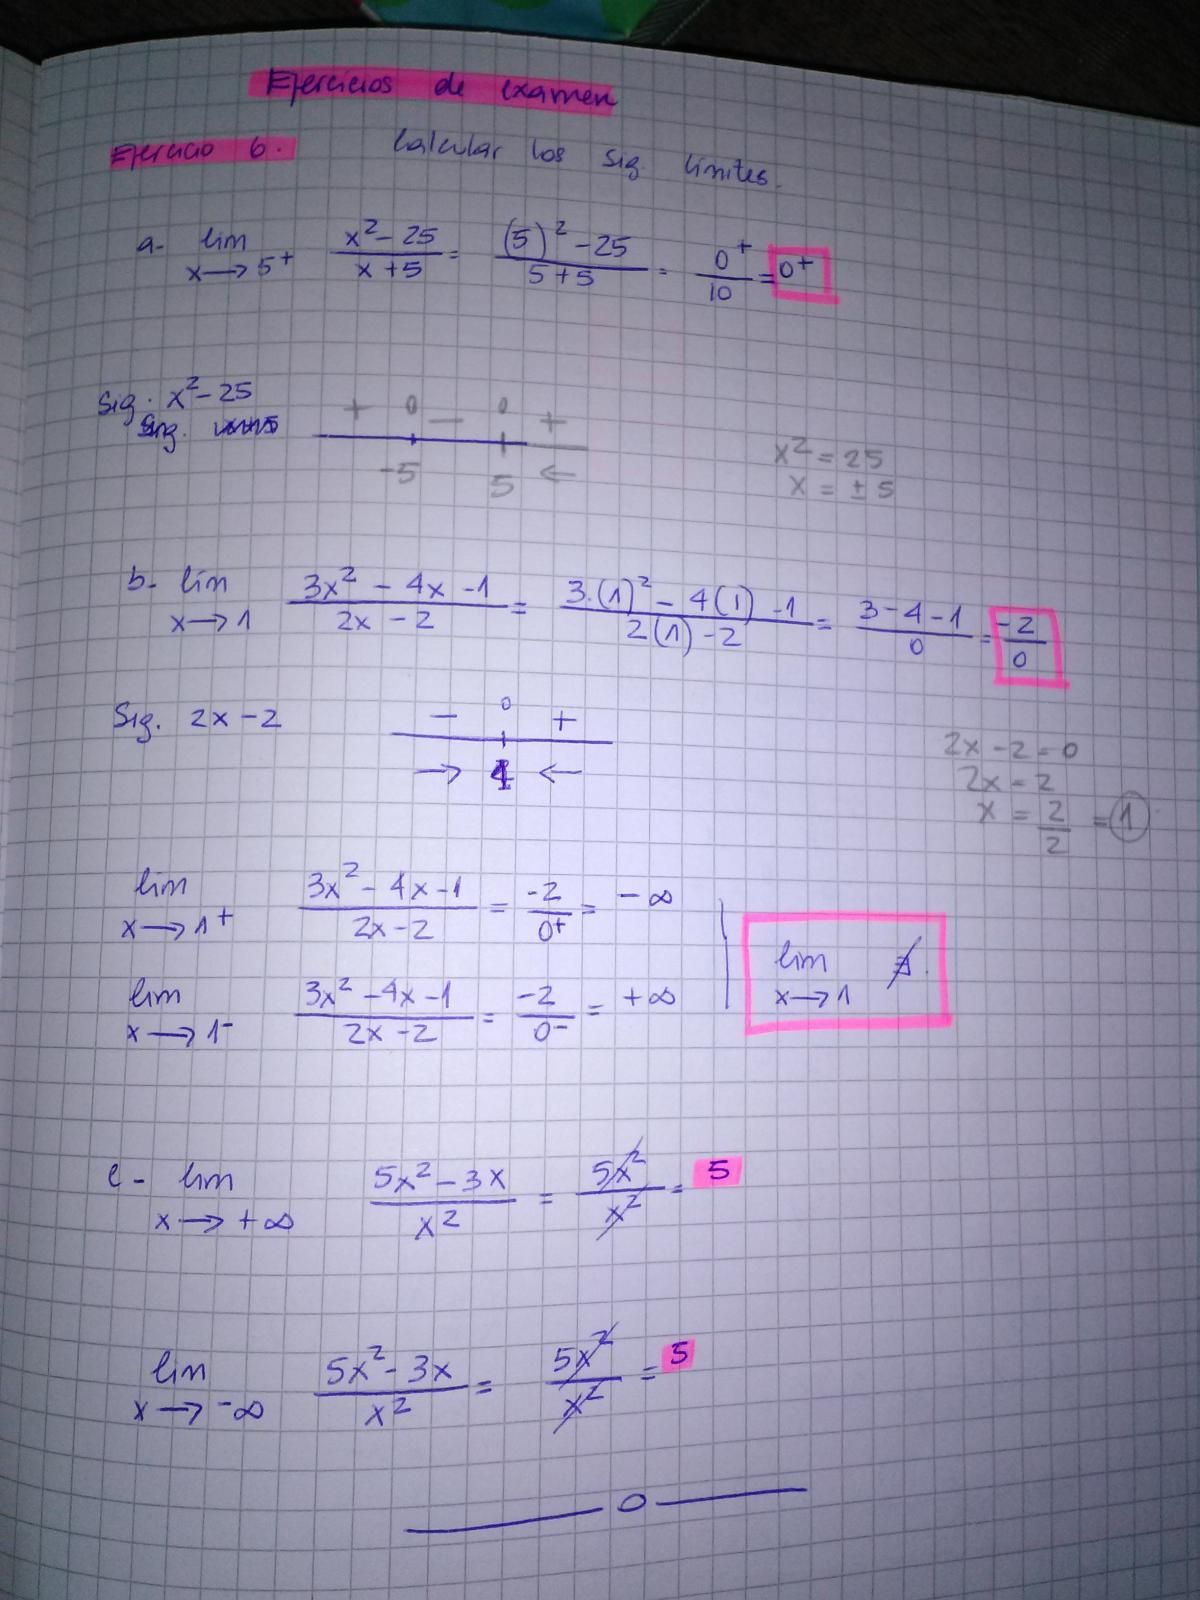 Ejercicios de examen
Ejercicio 6. Calcular los sig. límites.
a- lim x→5+ (x² - 25)/(x + 5) = ((5)² - 25)/(5 + 5) = 0+/10 = 0+
Sig. x² - 25
Sig.
+ 0 - 0 +
-5 5 ←
x² = 25
x = ± 5
b- lim x→1 (3x² - 4x - 1)/(2x - 2) = (3·(1)² - 4(1) - 1)/(2(1) - 2) = (3 - 4 - 1)/0 = -2/0
Sig. 2x - 2
- 0 +
→ 1 ←
2x - 2 = 0
2x = 2
x = 2/2 = 1
lim x→1+ (3x² - 4x - 1)/(2x - 2) = -2/0+ = - ∞
lim x→1- (3x² - 4x - 1)/(2x - 2) = -2/0- = + ∞
lim x→1 ∄.
c- lim x→+∞ (5x² - 3x)/x² = 5x²/x² = 5
lim x→-∞ (5x² - 3x)/x² = 5x²/x² = 5